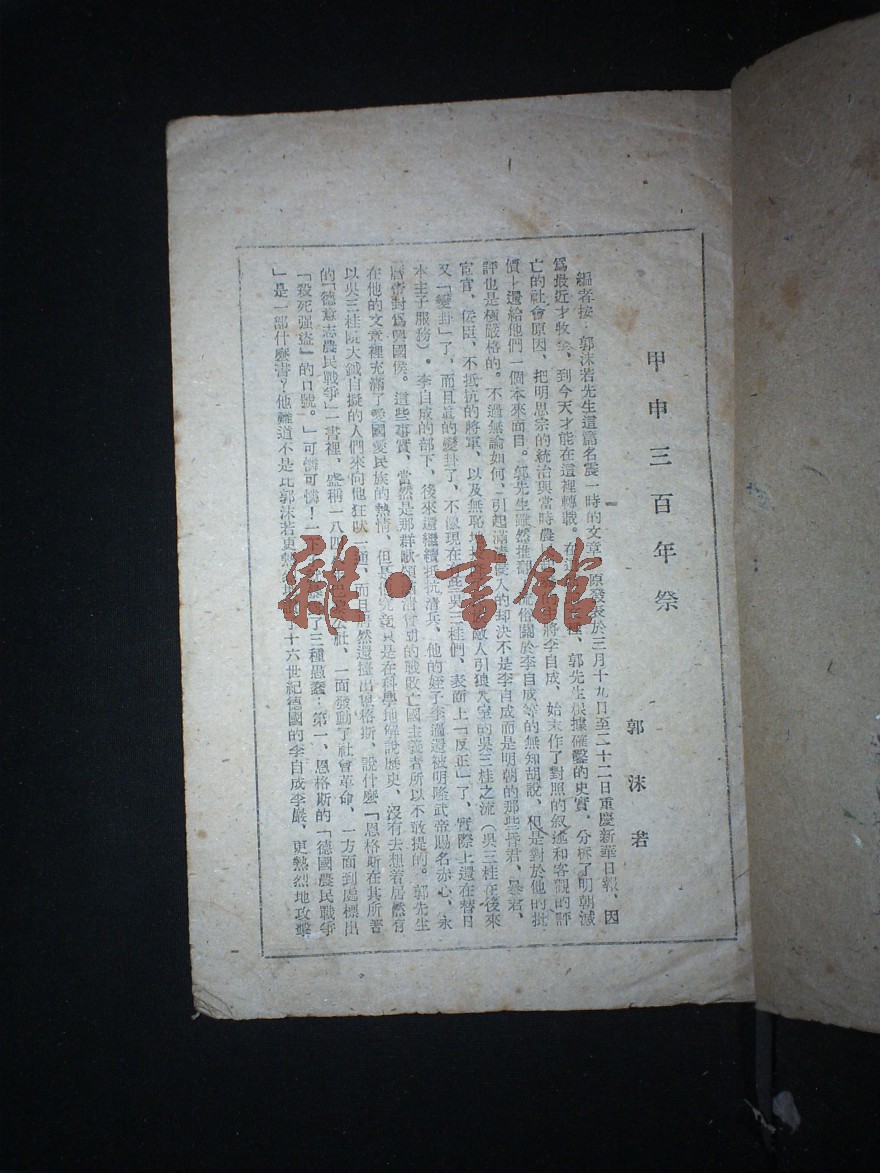 甲申三百年祭
郭沫若
編者按：郭沫若先生這篇名震一時的文章，原發表於三月十九日至二十二日重慶新華日報，因
爲最近才收到，到今天才能在這裡轉載。在這 郭先生根據確鑿的史實，分析了明朝滅
亡的社會原因，把明思宗的統治與當時農 將李自成、始末作了對照的叙述和客觀的評
價，還給他們一個本來面目。郭先生雖然推翻 流俗關於李自成等的無知胡說，但是對於他的批
評也是極嚴格的。不過無論如何，引起滿清 人的却决不是李自成而是明朝的那些昏君、暴君、
宦官、佞臣、不抵抗的將軍，以及無恥地 敵人引狼入室的吳三桂之流（吳三桂在後來
又「變卦」了，而且眞的變卦了，不像現在 些吳三桂們，表面上「反正」了，實際上還在替日
本主子服務）。李自成的部下，後來還繼續抵抗清兵，他的姪子李過還被明隆武帝賜名赤心，永
曆 封爲興國侯。這些事實，當然是那群 的戰敗亡國主義者所以不敢提的。郭先生
在他的文章裡充滿了愛國愛民族的熱情，但 究竟只是在科學地解說歷史，沒有去想着居然有
以吳三桂阮大鋮自擬的人們來向他狂吠一通，而且居然還擡出恩格斯，說什麼「恩格斯在其所著
的『德意志農民戰爭』一書裡，盛稱一八四 公社，一面發動了社會革命，一方面到處標出
『殺死强盜』的口號。」可憐可憐！一下 了三種愚蠢：第一、恩格斯的「德國農民戰爭
」是一部什麼書？他難道不是比郭沫若更 十六世紀德國的李自成李嚴，更熱烈地攻擊
雜·書館